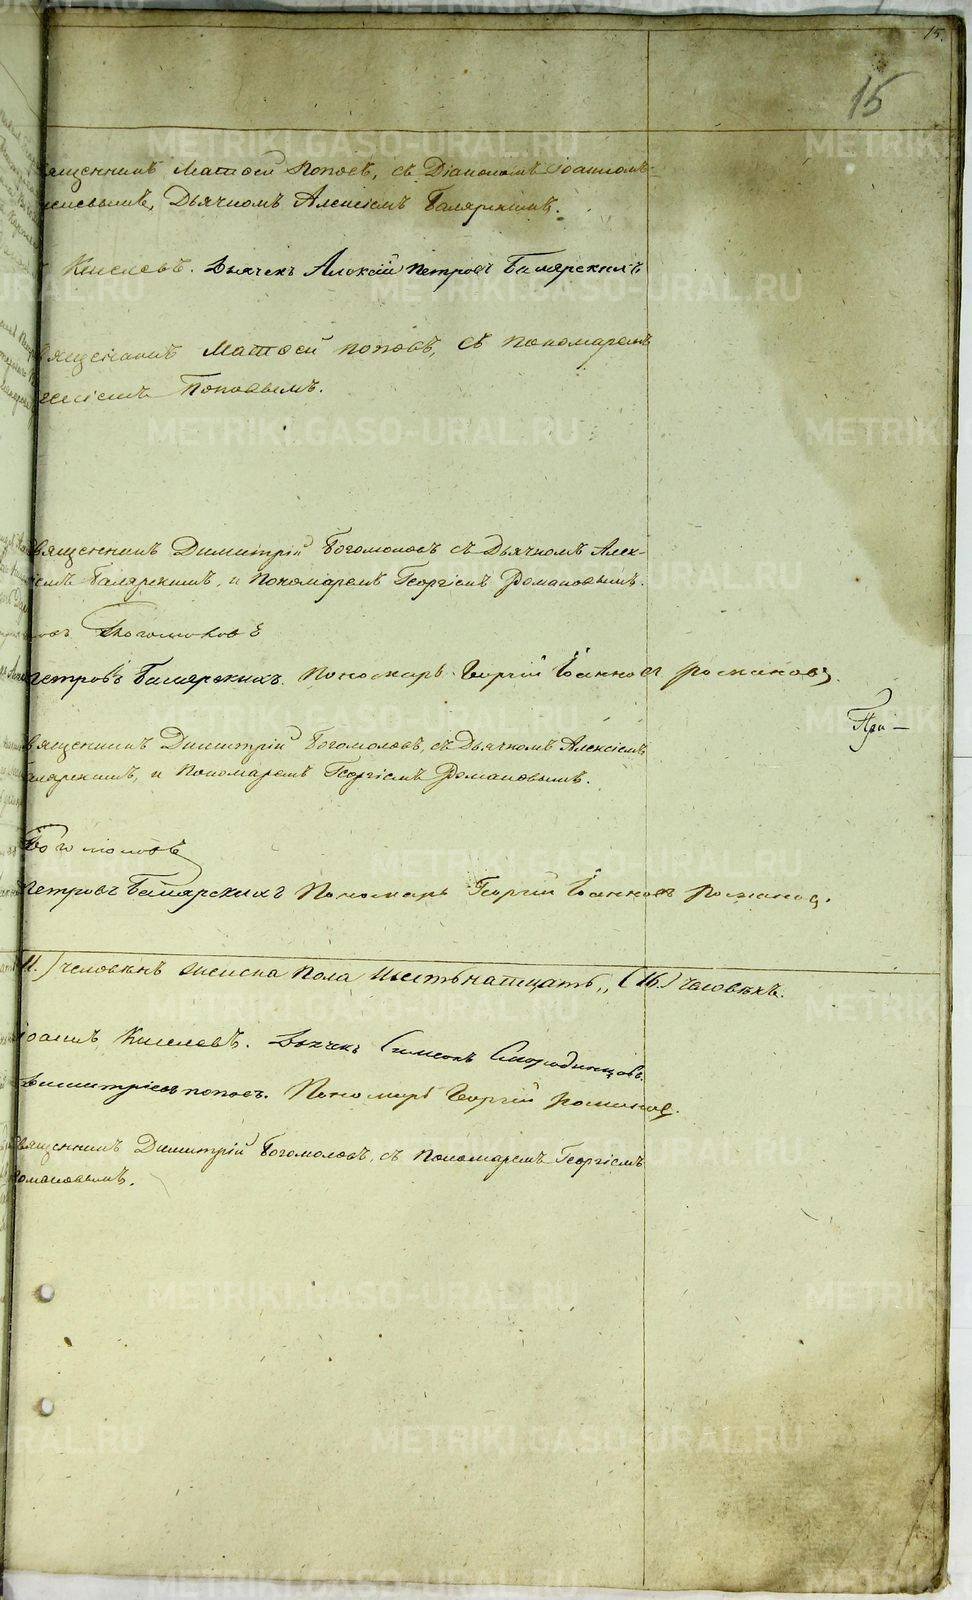 15.
15
вященникъ Матѳей Поповъ, съ Діакономъ Іоанномъ
иселевымъ, Дьячкомъ Алексіемъ Балярскимъ.
Киселевъ. Дьячекъ Алексій Петровъ Балярскихъ
вященникъ Матѳей поповъ, съ пономаремъ
ргіемъ Поповымъ.
вященникъ Димитрій Богомоловъ съ Дьячкомъ Алек-
іемъ Балярскимъ, и Пономаремъ Георгіемъ Романовымъ.
Богомоловъ
петровъ Балярскихъ. Пономарь Георгій Іоанновъ Романовъ.
При—
вященникъ Димитрій Богомоловъ, съ Дьячкомъ Алексіемъ
алярскимъ, и Пономаремъ Георгіемъ Романовымъ.
Богомоловъ
Петровъ Балярскихъ Пономарь Георгій Іоанновъ Романовъ.
11.) человѣкъ женска пола шестьнатцать„ (16.) человѣкъ.
Іоаннъ Киселевъ. Дьячекъ Симеонъ Смородинцовъ.
Димитріевъ поповъ. Пономарь Георгій Романовъ.
вященникъ Димитрій Богомоловъ, съ Пономаремъ Георгіемъ
омановымъ.
METRIKI.GASO-URAL.RU